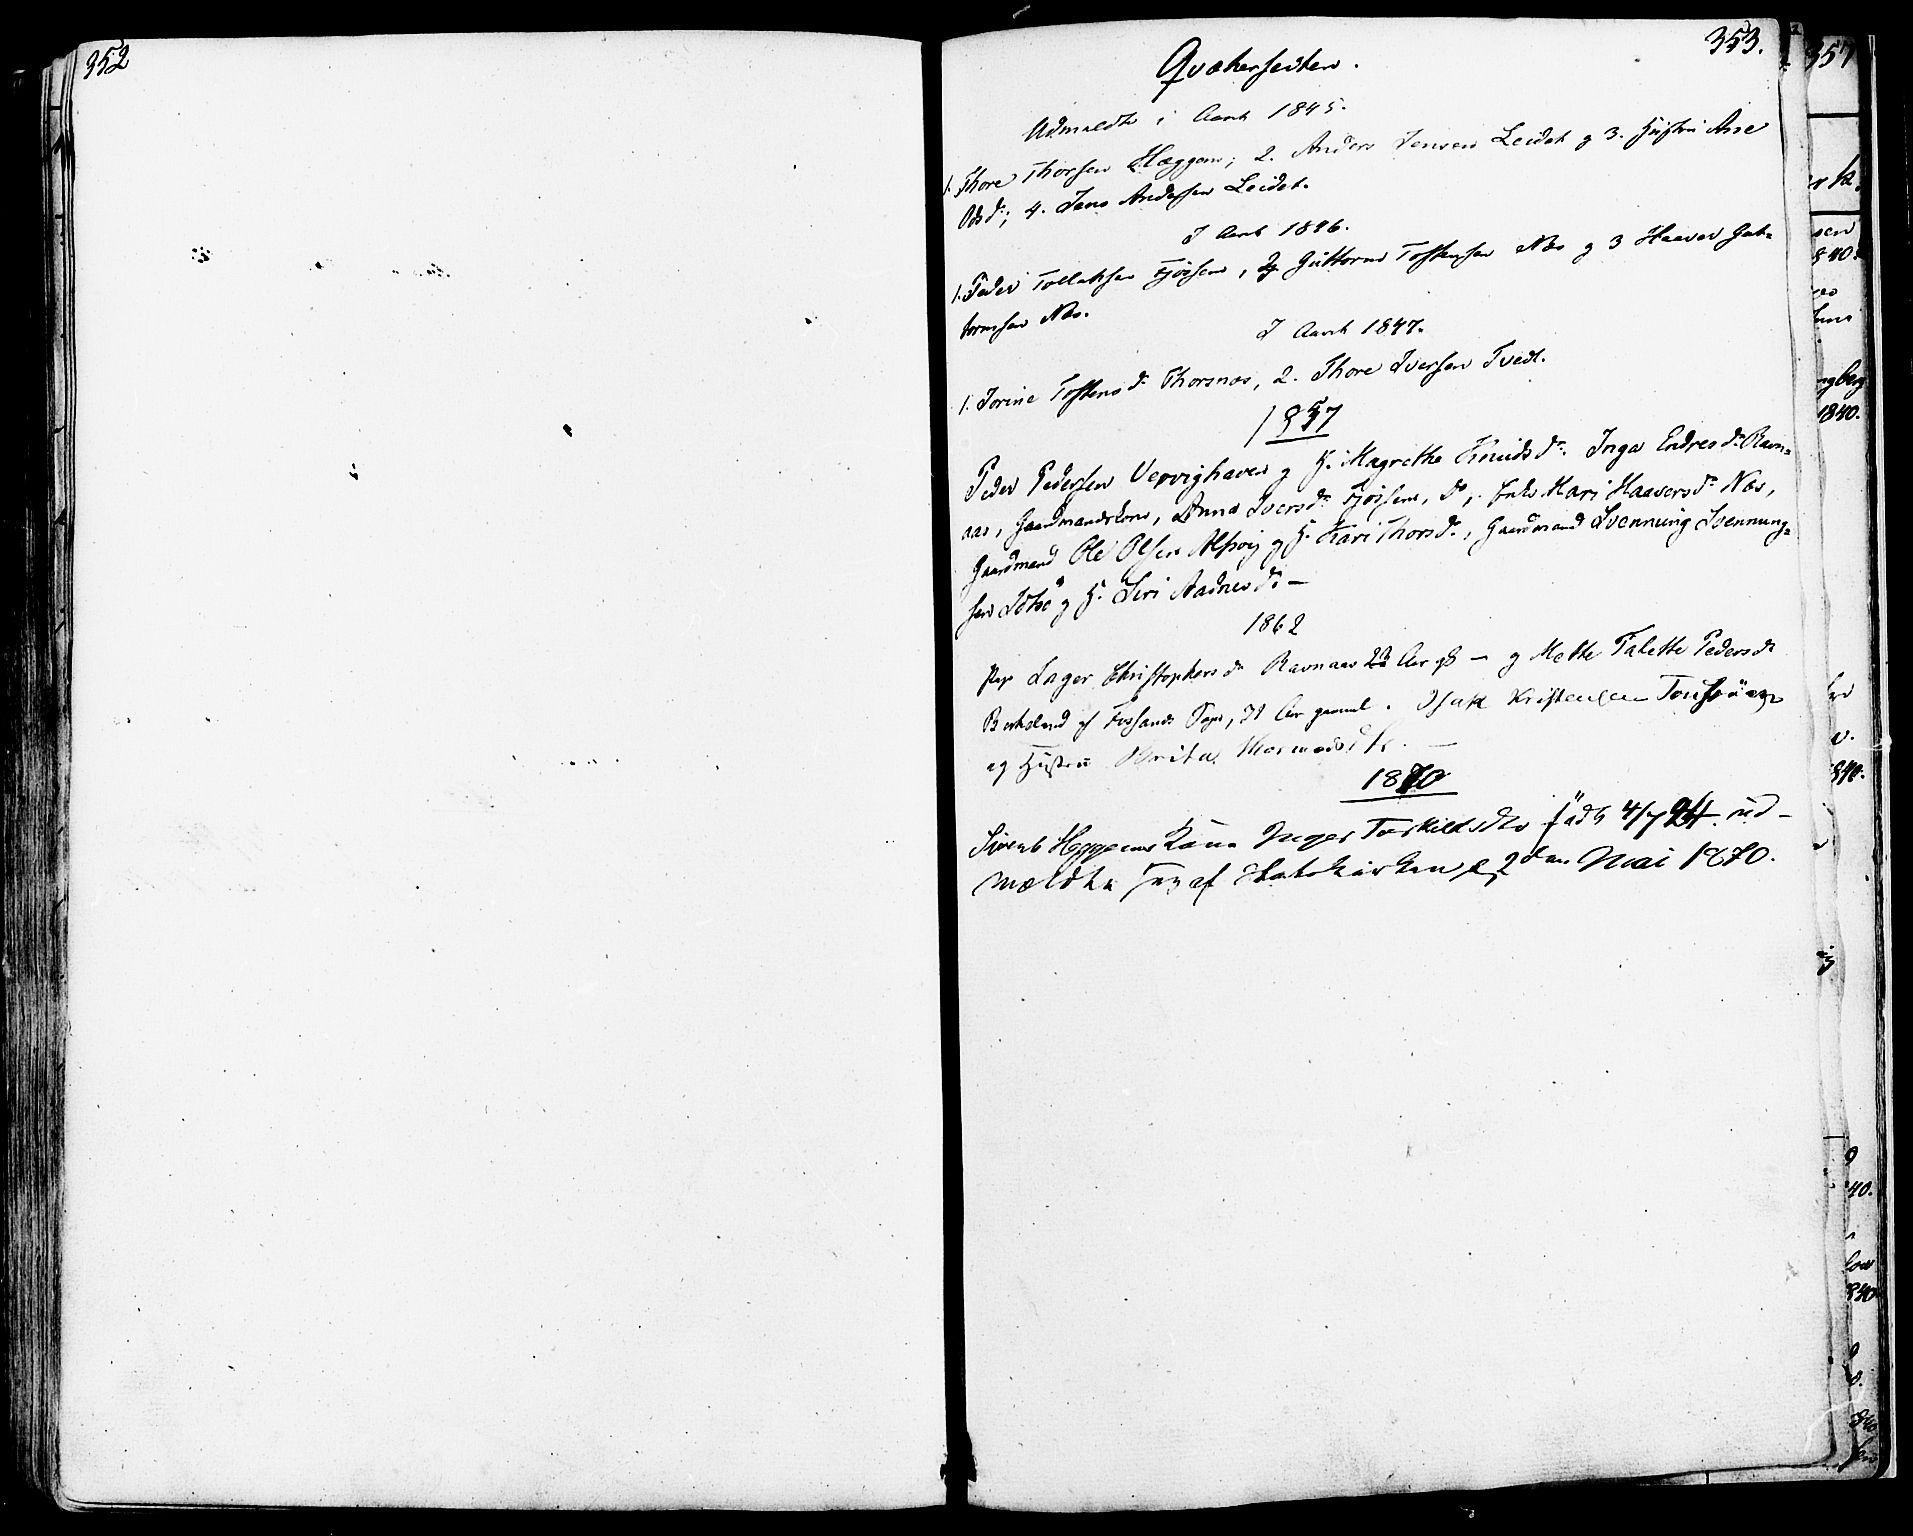 352
353.
Qvækersecten.
Udmeldte i Aaret 1845.
1. Thore Thorsen Hæggem; 2. Anders Jensen Leidet og 3. Hustru Ase
Odsdr; 4. Jens Andersen Leidet.
I Aaret 1846.
1. Peder Tollaksen Fjøsem, 2. Guttorm Tostensen Næs og 3 Haaver Gut-
tormsen Næs.
I Aaret 1847.
1. Torine Tostensdr Thorsnæs, 2. Thore Iversen Tvedt.
1857
Peder Pedersen Vervighaven og H. Magrethe Knudsdr. Inga Endresdr. Ravn-
aas, Gaardmandskone, Anna Iversdr. Fjøsem, do, Enke Mari Haaversdr Næs,
Gaardmand Ole Olsen Alsvig og H. Kari Thorsdr., Gaardmand Svennung Svennung-
sen og H. Siri Aadnesdr. —
1862
Inger Christophersdr Ravnaas 23 Aar gl — og Mette Talette Pedersdr
Berkeland af Fossands Sogn, 31 Aar gammel. Isak Kristensen
og Hustru Brita —
1870
Sivert Heggems Kone Inger Torkildsdtr født 4/7 24. ud-
meldte sig af Statskirken d 2den Mai 1870.
357
1840.